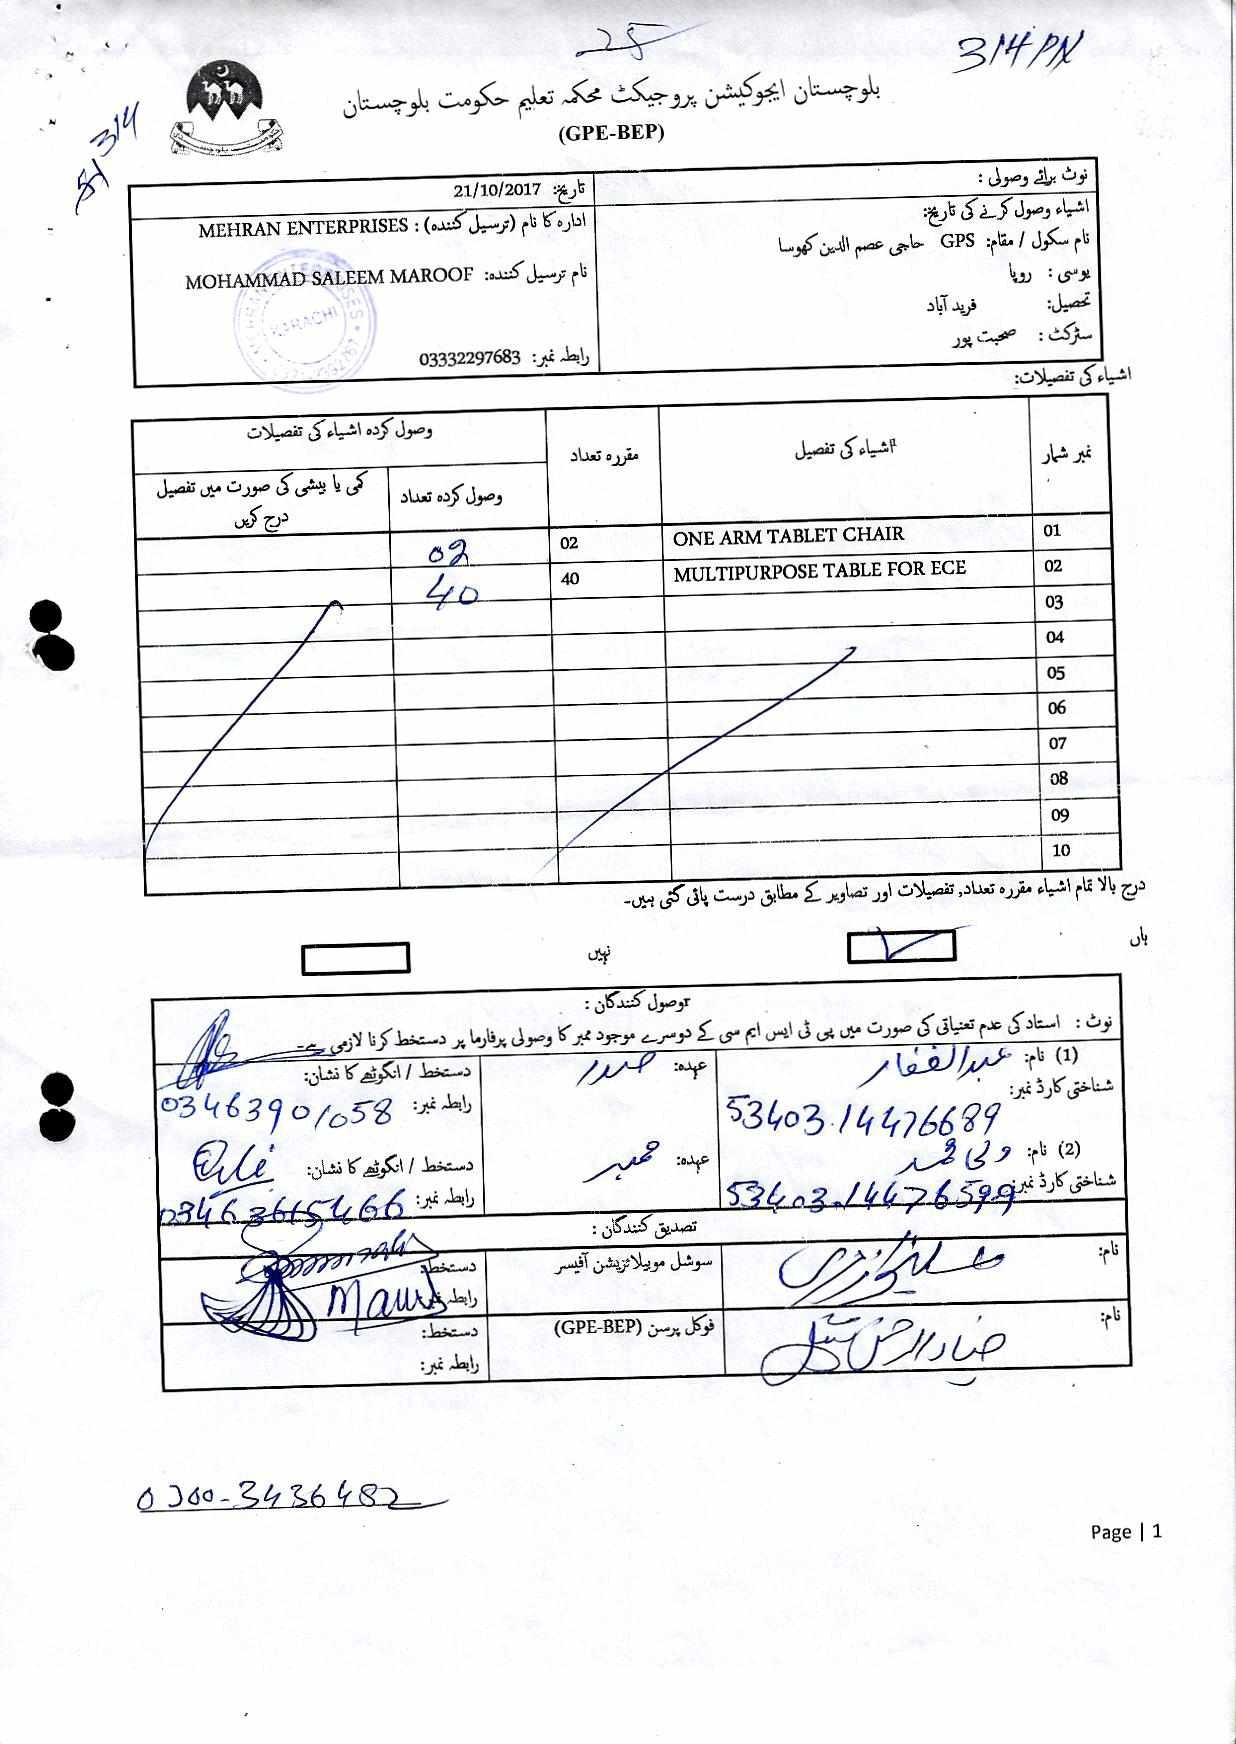 25
314 PN
314
بلوچستان ایجوکیشن پروجیکٹ محکمہ تعلیم حکومت بلوچستان
(GPE-BEP)
نوٹ برائے وصولی :
اشیاء وصول کرنے کی تاریخ:
نام سکول / مقام: GPS حاجی عصم الدین کھوسا
یوسی : روپا
تحصیل: فرید آباد
سٹرکٹ : صحبت پور
تاریخ: 21/10/2017
ادارہ کا نام (ترسیل کنندہ) : MEHRAN ENTERPRISES
نام ترسیل کنندہ: MOHAMMAD SALEEM MAROOF
KARACHI
رابطہ نمبر: 03332297683
اشیاء کی تفصیلات:
نمبر شمار
اشیاء کی تفصیل
مقررہ تعداد
وصول کردہ اشیاء کی تفصیلات
وصول کردہ تعداد
کمی یا بیشی کی صورت میں تفصیل درج کریں
01 ONE ARM TABLET CHAIR 02 02
02 MULTIPURPOSE TABLE FOR ECE 40 40
03
04
05
06
07
08
09
10
درج بالا تمام اشیاء مقررہ تعداد, تفصیلات اور تصاویر کے مطابق درست پائی گئی ہیں۔
ہاں
نہیں
وصول کنندگان :
نوٹ : استاد کی عدم تعنیاتی کی صورت میں پی ٹی ایس ایم سی کے دوسرے موجود ممبر کا وصولی پرفارما پر دستخط کرنا لازمی ہے۔
(1) نام: عبدالغفار
عہدہ: صدر
دستخط / انگوٹھے کا نشان:
شناختی کارڈ نمبر: 53403.14476689
رابطہ نمبر: 03463901058
(2) نام: ولی محمد
عہدہ: ممبر
دستخط / انگوٹھے کا نشان:
شناختی کارڈ نمبر: 53403.14476599
رابطہ نمبر: 03463615466
تصدیق کنندگان :
نام:
سوشل موبیلائزیشن آفیسر
دستخط:
رابطہ نمبر:
نام:
فوکل پرسن (GPE-BEP)
دستخط:
رابطہ نمبر:
0300-3436482
Page | 1